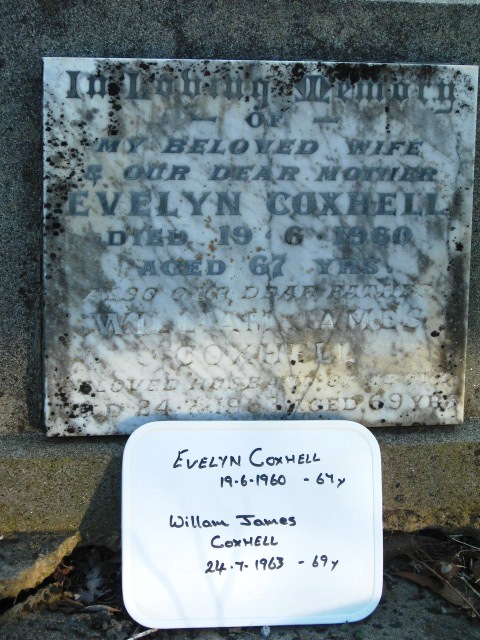 In Loving Memory
— OF —
MY BELOVED WIFE
& OUR DEAR MOTHER
EVELYN COXHELL
DIED 19 6 1960
AGED 67 YRS.
ALSO OUR DEAR FATHER
WILLIAM JAMES
COXHELL
BELOVED HUSBAND OF
DIED 24 7 1963 AGED 69 YRS
EVELYN COXHELL
19.6.1960 - 67y
Willam James
COXHELL
24.7.1963 - 69y